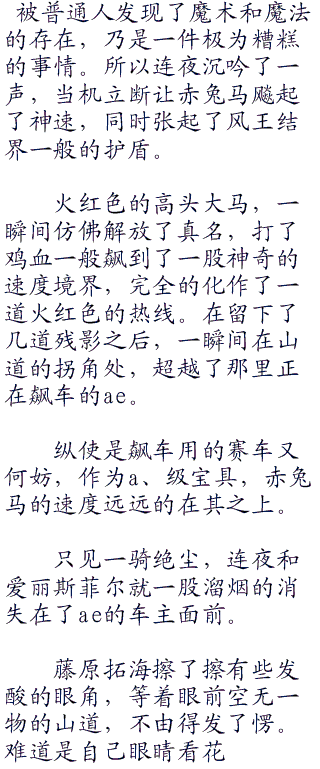 被普通人发现了魔术和魔法
的存在，乃是一件极为糟糕
的事情。所以连夜沉吟了一
声，当机立断让赤兔马飚起
了神速，同时张起了风王结
界一般的护盾。
火红色的高头大马，一
瞬间仿佛解放了真名，打了
鸡血一般飙到了一股神奇的
速度境界，完全的化作了一
道火红色的热线。在留下了
几道残影之后，一瞬间在山
道的拐角处，超越了那里正
在飙车的ae。
纵使是飙车用的赛车又
何妨，作为a、级宝具，赤兔
马的速度远远的在其之上。
只见一骑绝尘，连夜和
爱丽斯菲尔就一股溜烟的消
失在了ae的车主面前。
藤原拓海擦了擦有些发
酸的眼角，等着眼前空无一
物的山道，不由得发了愣。
难道是自己眼睛看花